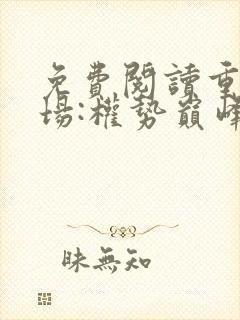 免費閱讀重
場:權勢巔峰
昧無知